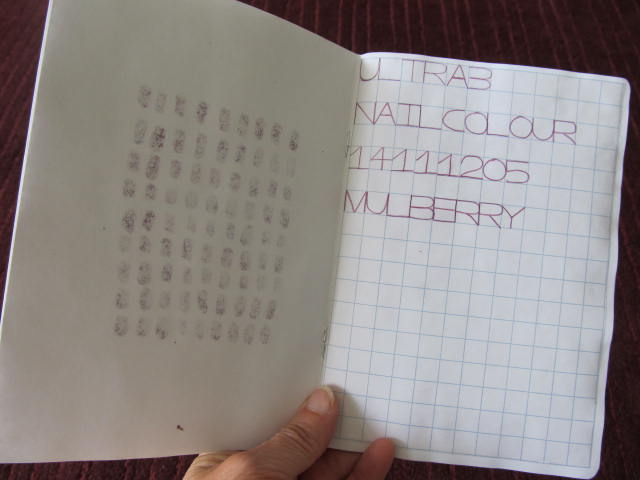 ULTRAB
NAILCOLOUR
14111205
MULBERRY